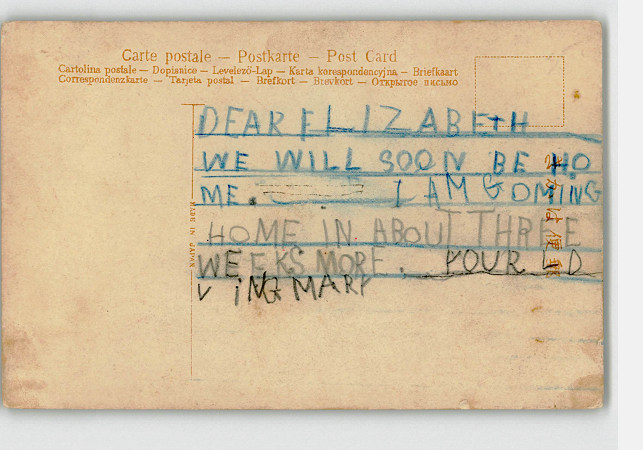 Carte postale — Postkarte — Post Card
Cartolina postale — Dopisnice — Levelező-Lap — Karta korespondencyjna — Briefkaart
Correspondenzkarte — Tarjeta postal — Brefkort — Brevkort — Открытое письмо
DEAR ELIZABETH
WE WILL SOON BE HO
ME. I AM GOMING
HOME IN ABOUT THREE
WEEKS MORE. YOUR LO
VING MARY
MADE IN JAPAN